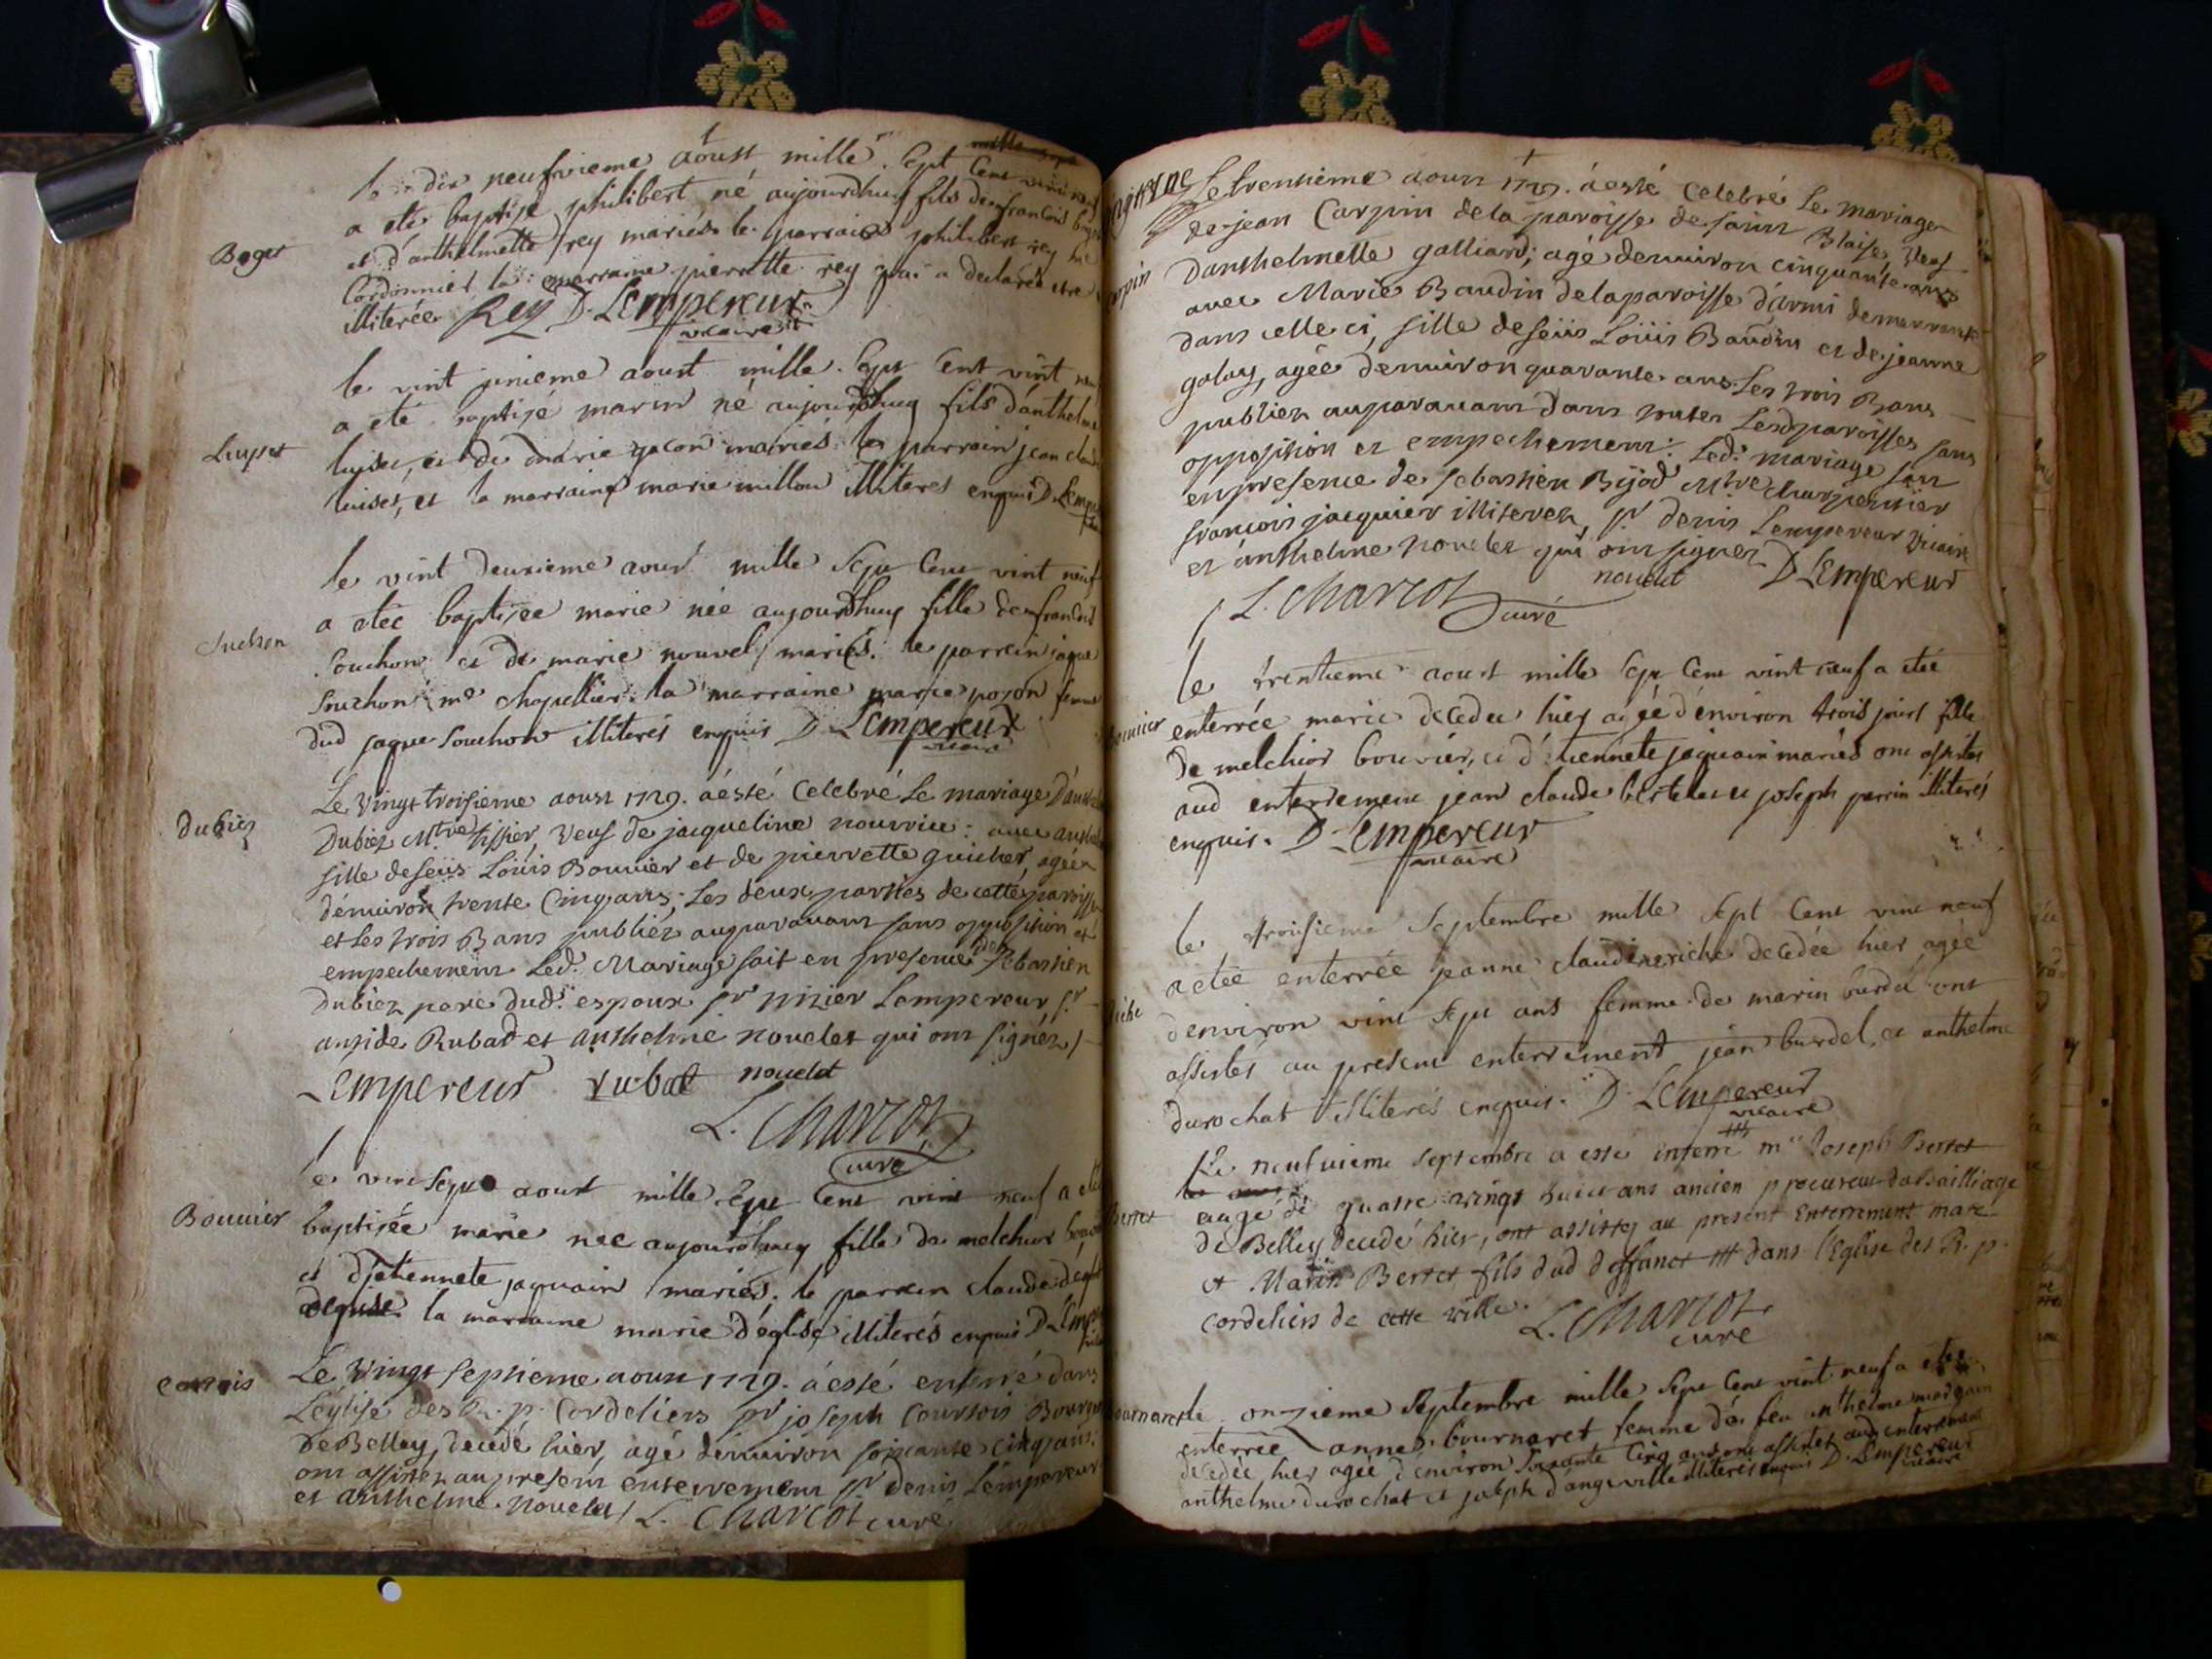 le dix neufvieme aoust mille. sept Cent vint neuf
a eté baptisé philibert né aujourdhuy fils de francois
et d'anthelmette rey mariés le parrain philibert rey
Cordonnier la marraine pierrette rey qui a declaré etre
illiterée Rey D. Lempereur
vicaire
Boget
le vint unieme aoust mille. sept Cent vint
a eté baptisé marin né aujourdhuy fils d'anthelme
luiset, et de marie gacon mariés le parrain jean claude
luiset, et la marraine marie millou illiterés enquis D. Lemp
Luyset
le vint deuxieme aoust mille sept Cent vint neuf
a etée baptisée marie née aujourdhuy fille de francois
souchon et de marie nouvel mariés. le parrein jaque
souchon me chapellier. la marraine marie poson femme
dud jaque souchon illiterés enquis D Lempereur
vicaire
Suchon
Le vingt troisieme aoust 1729. a esté celebré Le mariage
Dubiez Mtre tissier, veuf de jacqueline nourrice: avec
fille defeüs Loüis Bouuier et de pierrette guicher, agée
d'enuiron trente Cinq ans; Les deux parties de cette paroisse
et Les trois Bans publiéz auparauant sans opposition et
empechement. Led. Mariage fait en presence de sebastien
Dubiez pere dud. espoux sr nizier Lempereur, sr
anside Rubat et anthelme nouelet qui ont signéz /
Lempereur rubat nouelet
L. Charcot
curé
Dubiez
le vint sept aoust mille sept Cent vint neuf a eté
baptisée marie née aujourdhuy fille de melchior
et d'etiennete jaquain mariés. le parrein claude
la marraine marie d'eglise illiterés enquis D Lemp
Bouuier
Le vingt septieme aoust 1729. a esté enterré dans
L'église des R. p. Cordeliers sr joseph Courtois Bourgeois
De Belley, decedé hier, agé denuiron soixante cinq ans:
ont assistez au present enterrement sr denis Lempereur
et anthelme nouelet / L. Charcot curé
Le trentieme aoust 1729. a esté Celebré Le mariage
de jean Carpin de la paroisse de saint Blaise, veuf
Danthelmette galliard, agé denuiron cinquante ans
auec Marie Baudin de la paroisse d'armi demeurant
dans celle ci, fille de feüs Loüis Baudin et de jeanne
golay, agée denuiron quarante ans. Les trois Bans
publiez auparauant dans toutes Lesd paroisses sans
opposition et empechement: Led. mariage fait
en presence de sebastien Bijod Mtre charpentier
francois jacquier illiterez, sr denis Lempereur vicaire
et anthelme nouelet qui ont signez D Lempereur
nouelet
L. Charcot
curé
le trentieme aoust mille sept Cent vint neuf a etée
enterrée marie decedée hier agée d'environ trois jours fille
de melchior bouvier, et d'etiennete jaquain mariés ont assistés
aud enterrement jean claude bertelet et joseph perrin illiterés
enquis. D. Lempereur
vicaire
le troisieme septembre mille sept Cent vint neuf
a etée enterrée jeanne claudine riche decedée hier, agée
d'environ vint sept ans femme de marin burdel ont
assistés au present enterrement jean burdel, et anthelme
durochat illiterés enquis. D. Lempereur
vicaire
Le neufuieme septembre a esté enterré me Joseph Berret
augé de quatre vingt huict ans ancien procureur
de Belley decedé hier, ont assistez au present enterrement marc
et Marin Berret fils dud deffunct dans l'Eglise des R. p.
cordeliers de cette ville. L. Charcot
curé
Berret
le onzieme septembre mille sept Cent vint neuf a etée
enterrée anne bournaret femme de feu anthelme
decedée hier agée d'environ soixante Cinq ans ont assistés aud enterrement
anthelme durochat et joseph d'angeville illiterés enquis D. Lempereur
vicaire